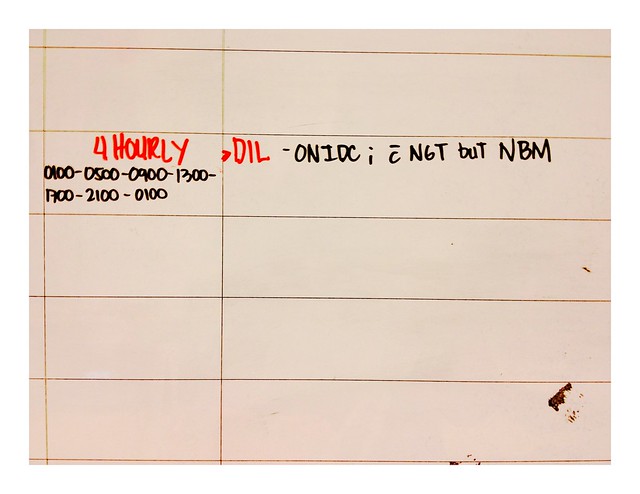 4 HOURLY >DIL - ON IDC ; c̄ NGT but NBM
0100-0500-0900-1300-
1700-2100-0100